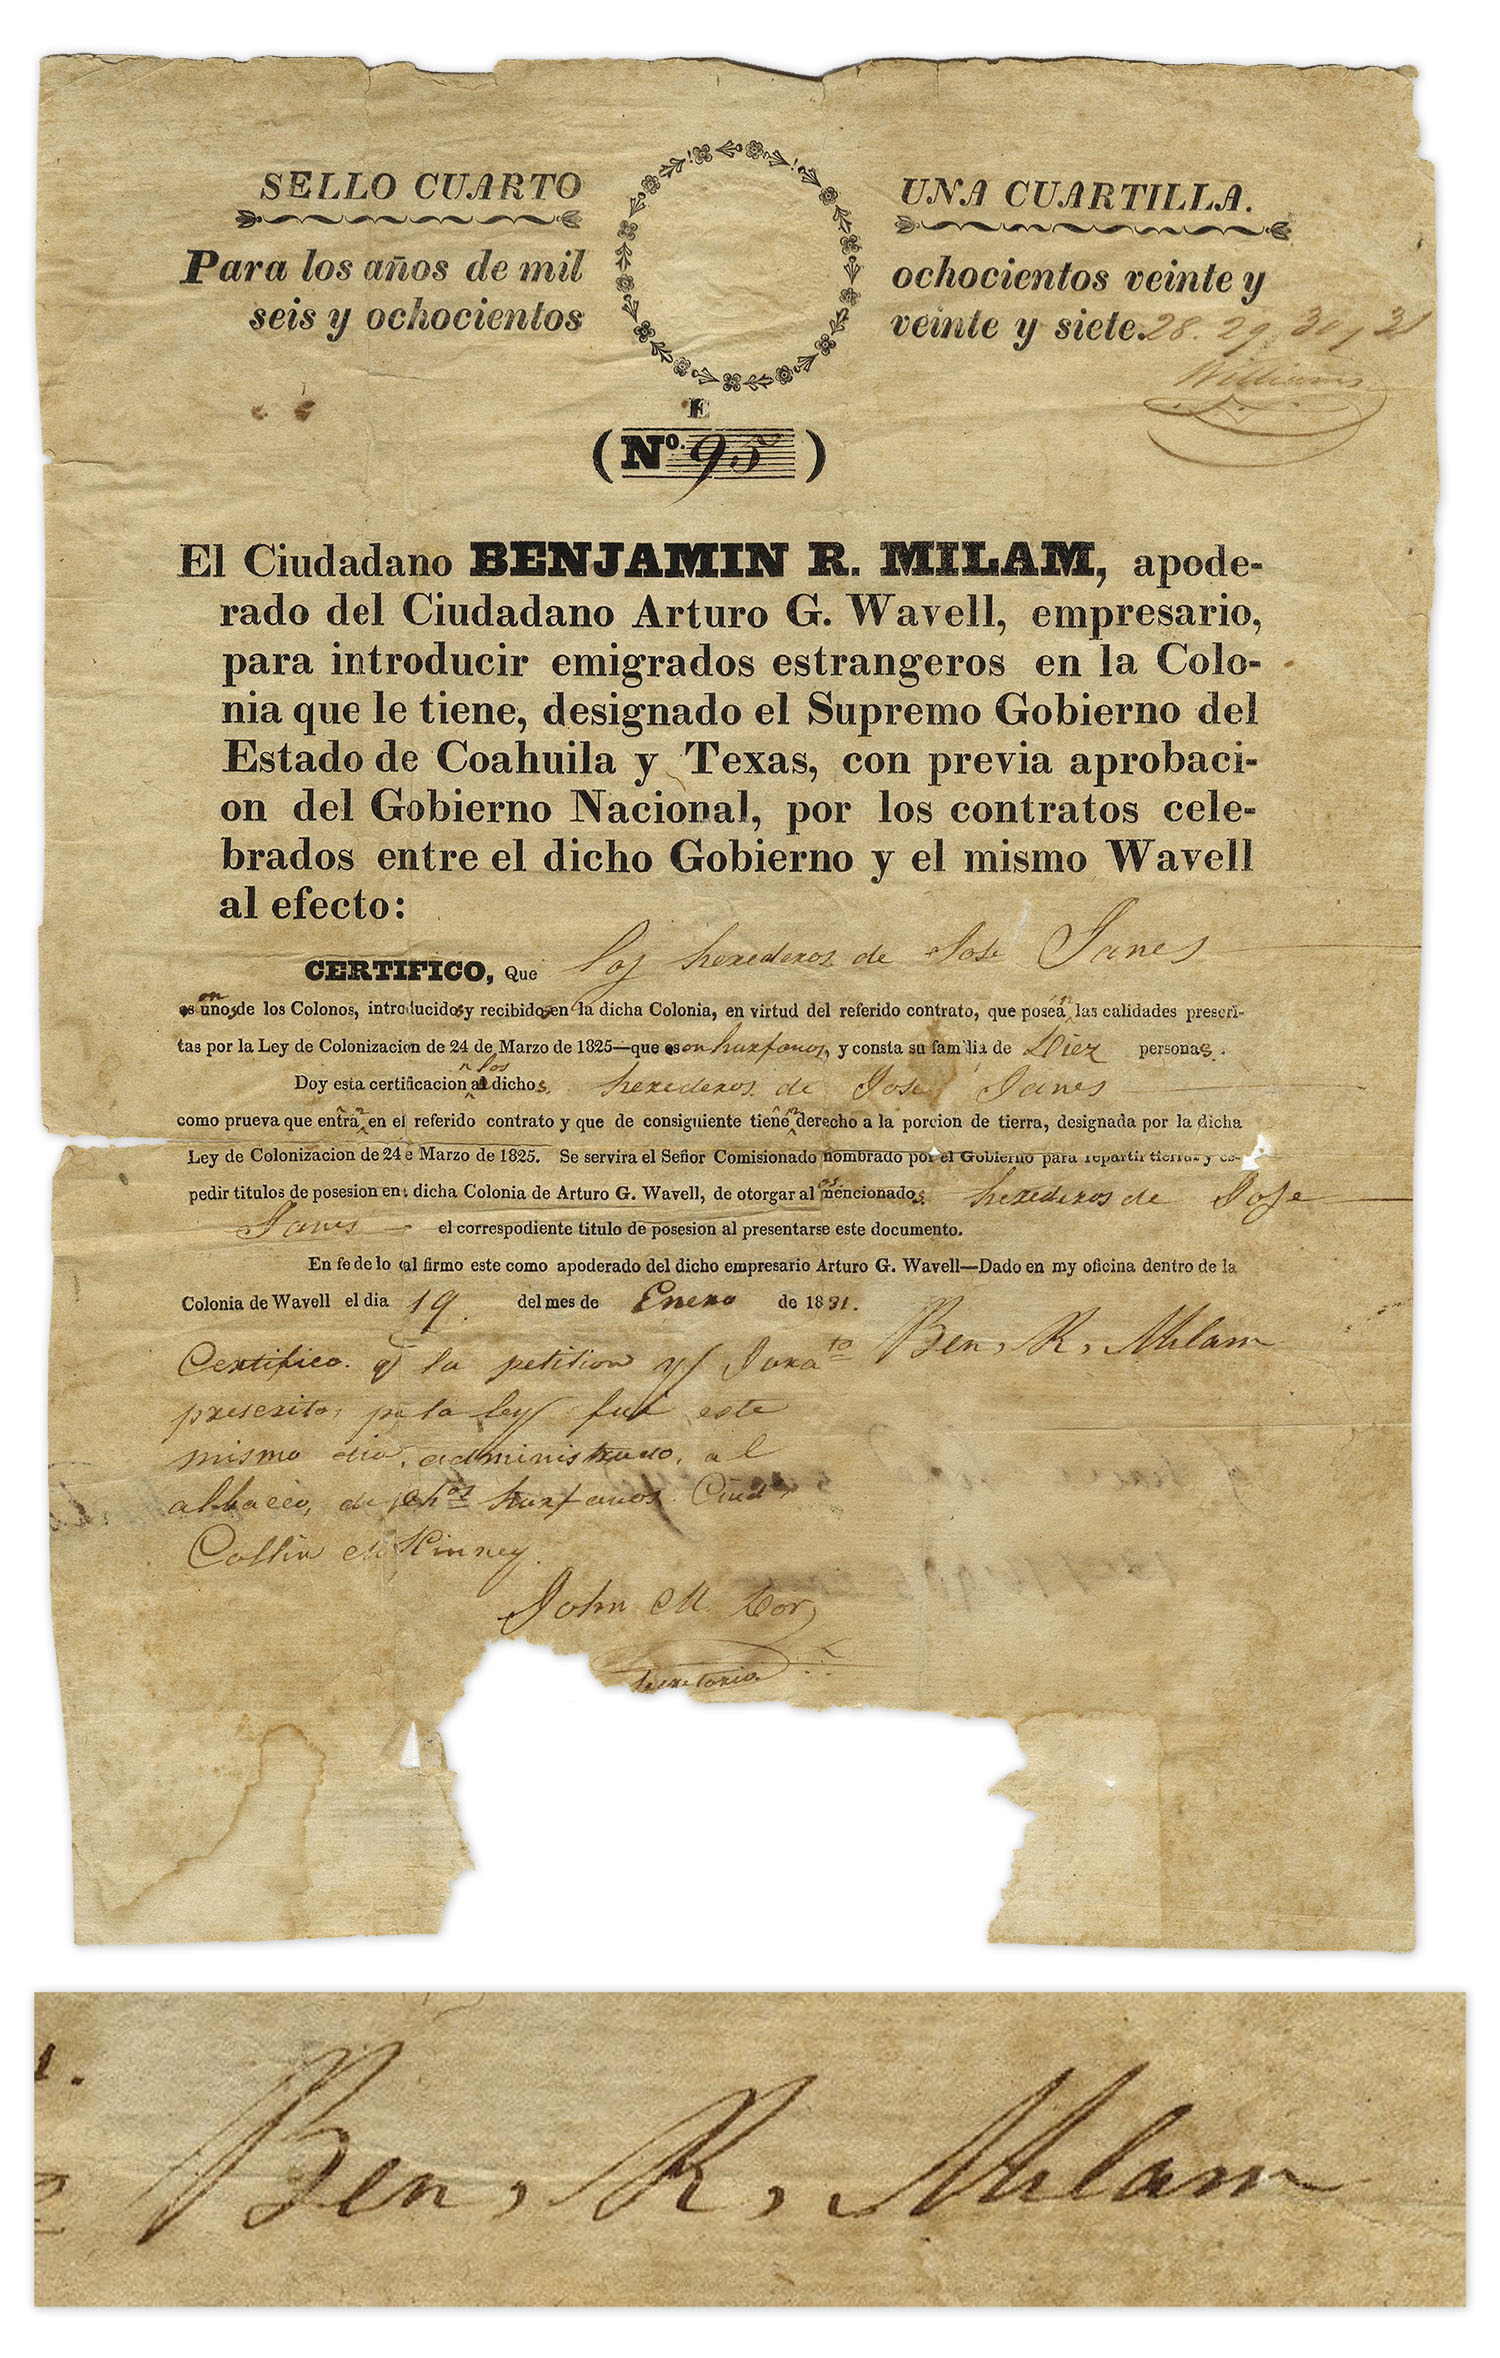 SELLO CUARTO
UNA CUARTILLA.
Para los años de mil
ochocientos veinte y
seis y ochocientos
veinte y siete. 28. 29. 30 y 31
Williams
E
(No. 95)
El Ciudadano BENJAMIN R. MILAM, apode-
rado del Ciudadano Arturo G. Wavell, empresario,
para introducir emigrados estrangeros en la Colo-
nia que le tiene, designado el Supremo Gobierno del
Estado de Coahuila y Texas, con previa aprobaci-
on del Gobierno Nacional, por los contratos cele-
brados entre el dicho Gobierno y el mismo Wavell
al efecto:
CERTIFICO, Que los herederos de Jose Janes
son unos de los Colonos, introducidos y recibidos en la dicha Colonia, en virtud del referido contrato, que posean las calidades prescri-
tas por la Ley de Colonizacion de 24 de Marzo de 1825—que son huxfanos, y consta su familia de Diez personas.
Doy esta certificacion a los dichos. herederos de Jose Janes
como prueva que entran en el referido contrato y que de consiguiente tienen derecho a la porcion de tierra, designada por la dicha
Ley de Colonizacion de 24 e Marzo de 1825. Se servira el Señor Comisionado nombrado por el Gobierno para repartir tierras y es-
pedir titulos de posesion en dicha Colonia de Arturo G. Wavell, de otorgar al os mencionados. herederos de Jose
Janes el correspodiente titulo de posesion al presentarse este documento.
En fe de lo cual firmo este como apoderado del dicho empresario Arturo G. Wavell—Dado en my oficina dentro de la
Colonia de Wavell el dia 19 del mes de Enero de 1831.
Ben, R, Milam
Certifico. q la petition y Jurato
prescrito, pr la ley fué este
mismo dia, administrado, al
albaceo, de dhos huxfanos. Ciudo
Collin McKinney.
John M. Dor
Secretario
Ben, R, Milam